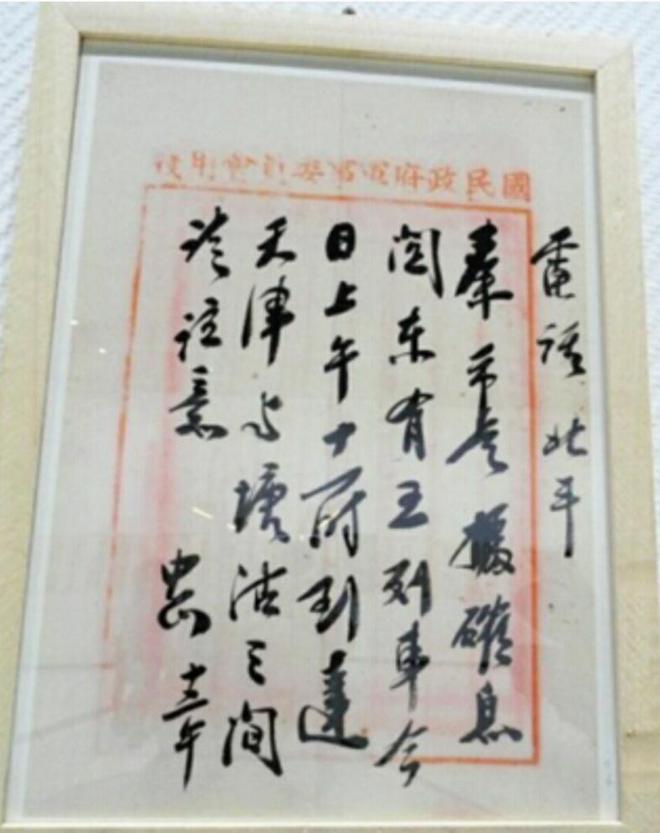 國民政府軍事委員會用箋
電話北平
秦市長據確息
関东有五列車今
日上午十时到達
天津与塘沽之间
请注意
中正 十三午